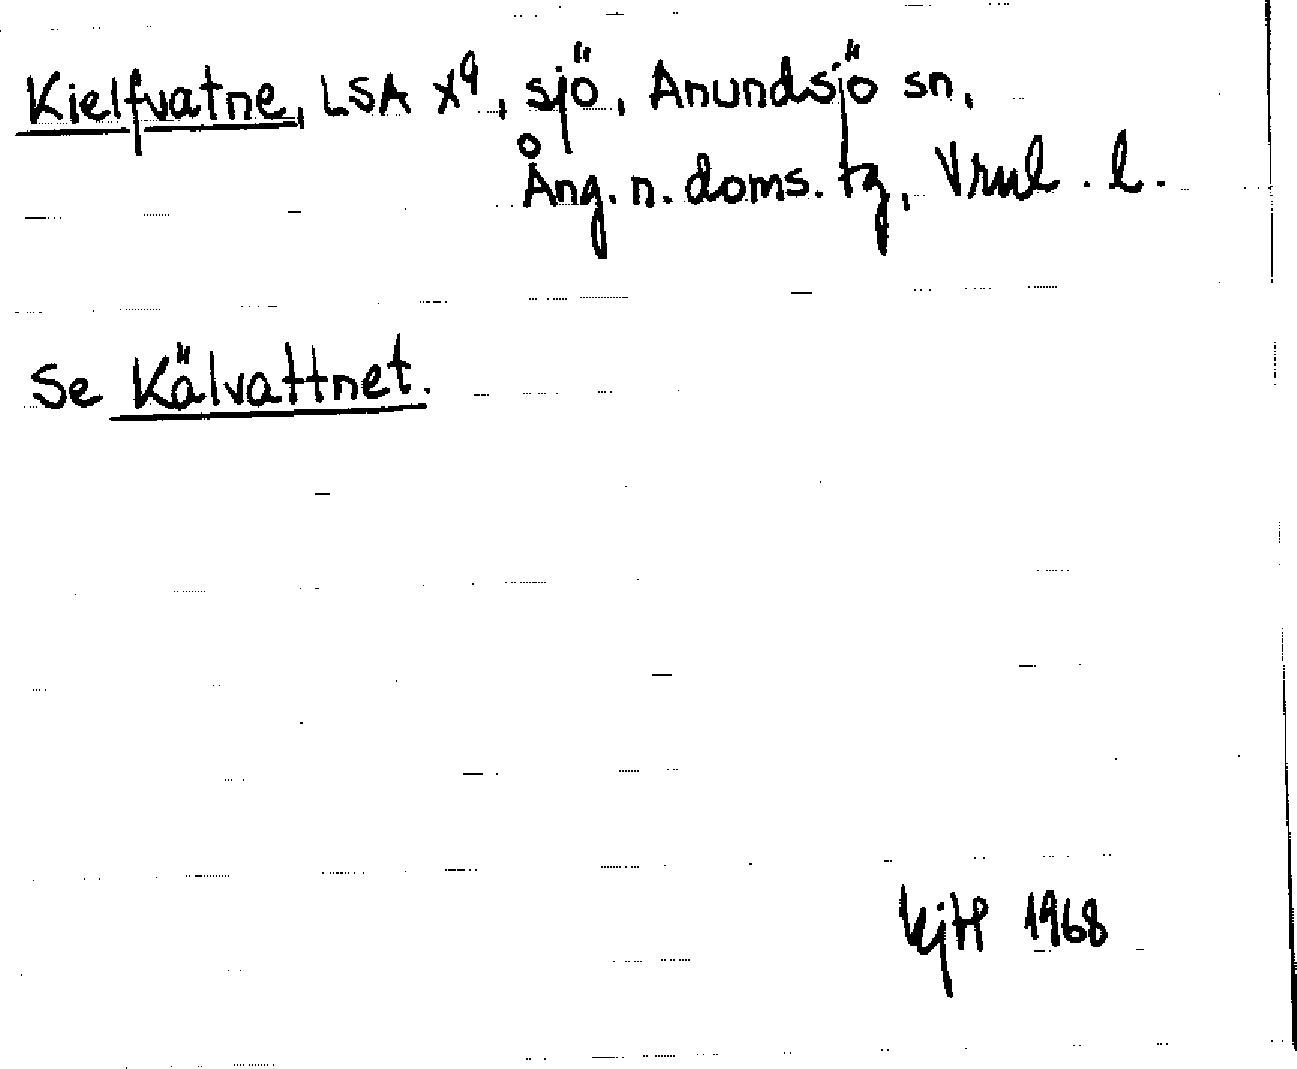 Kielfvatne, LSA X⁹, sjö, Anundsjö sn,
Ång. n. doms. tg, Vrnl. l.
Se Kälvattnet.
1968